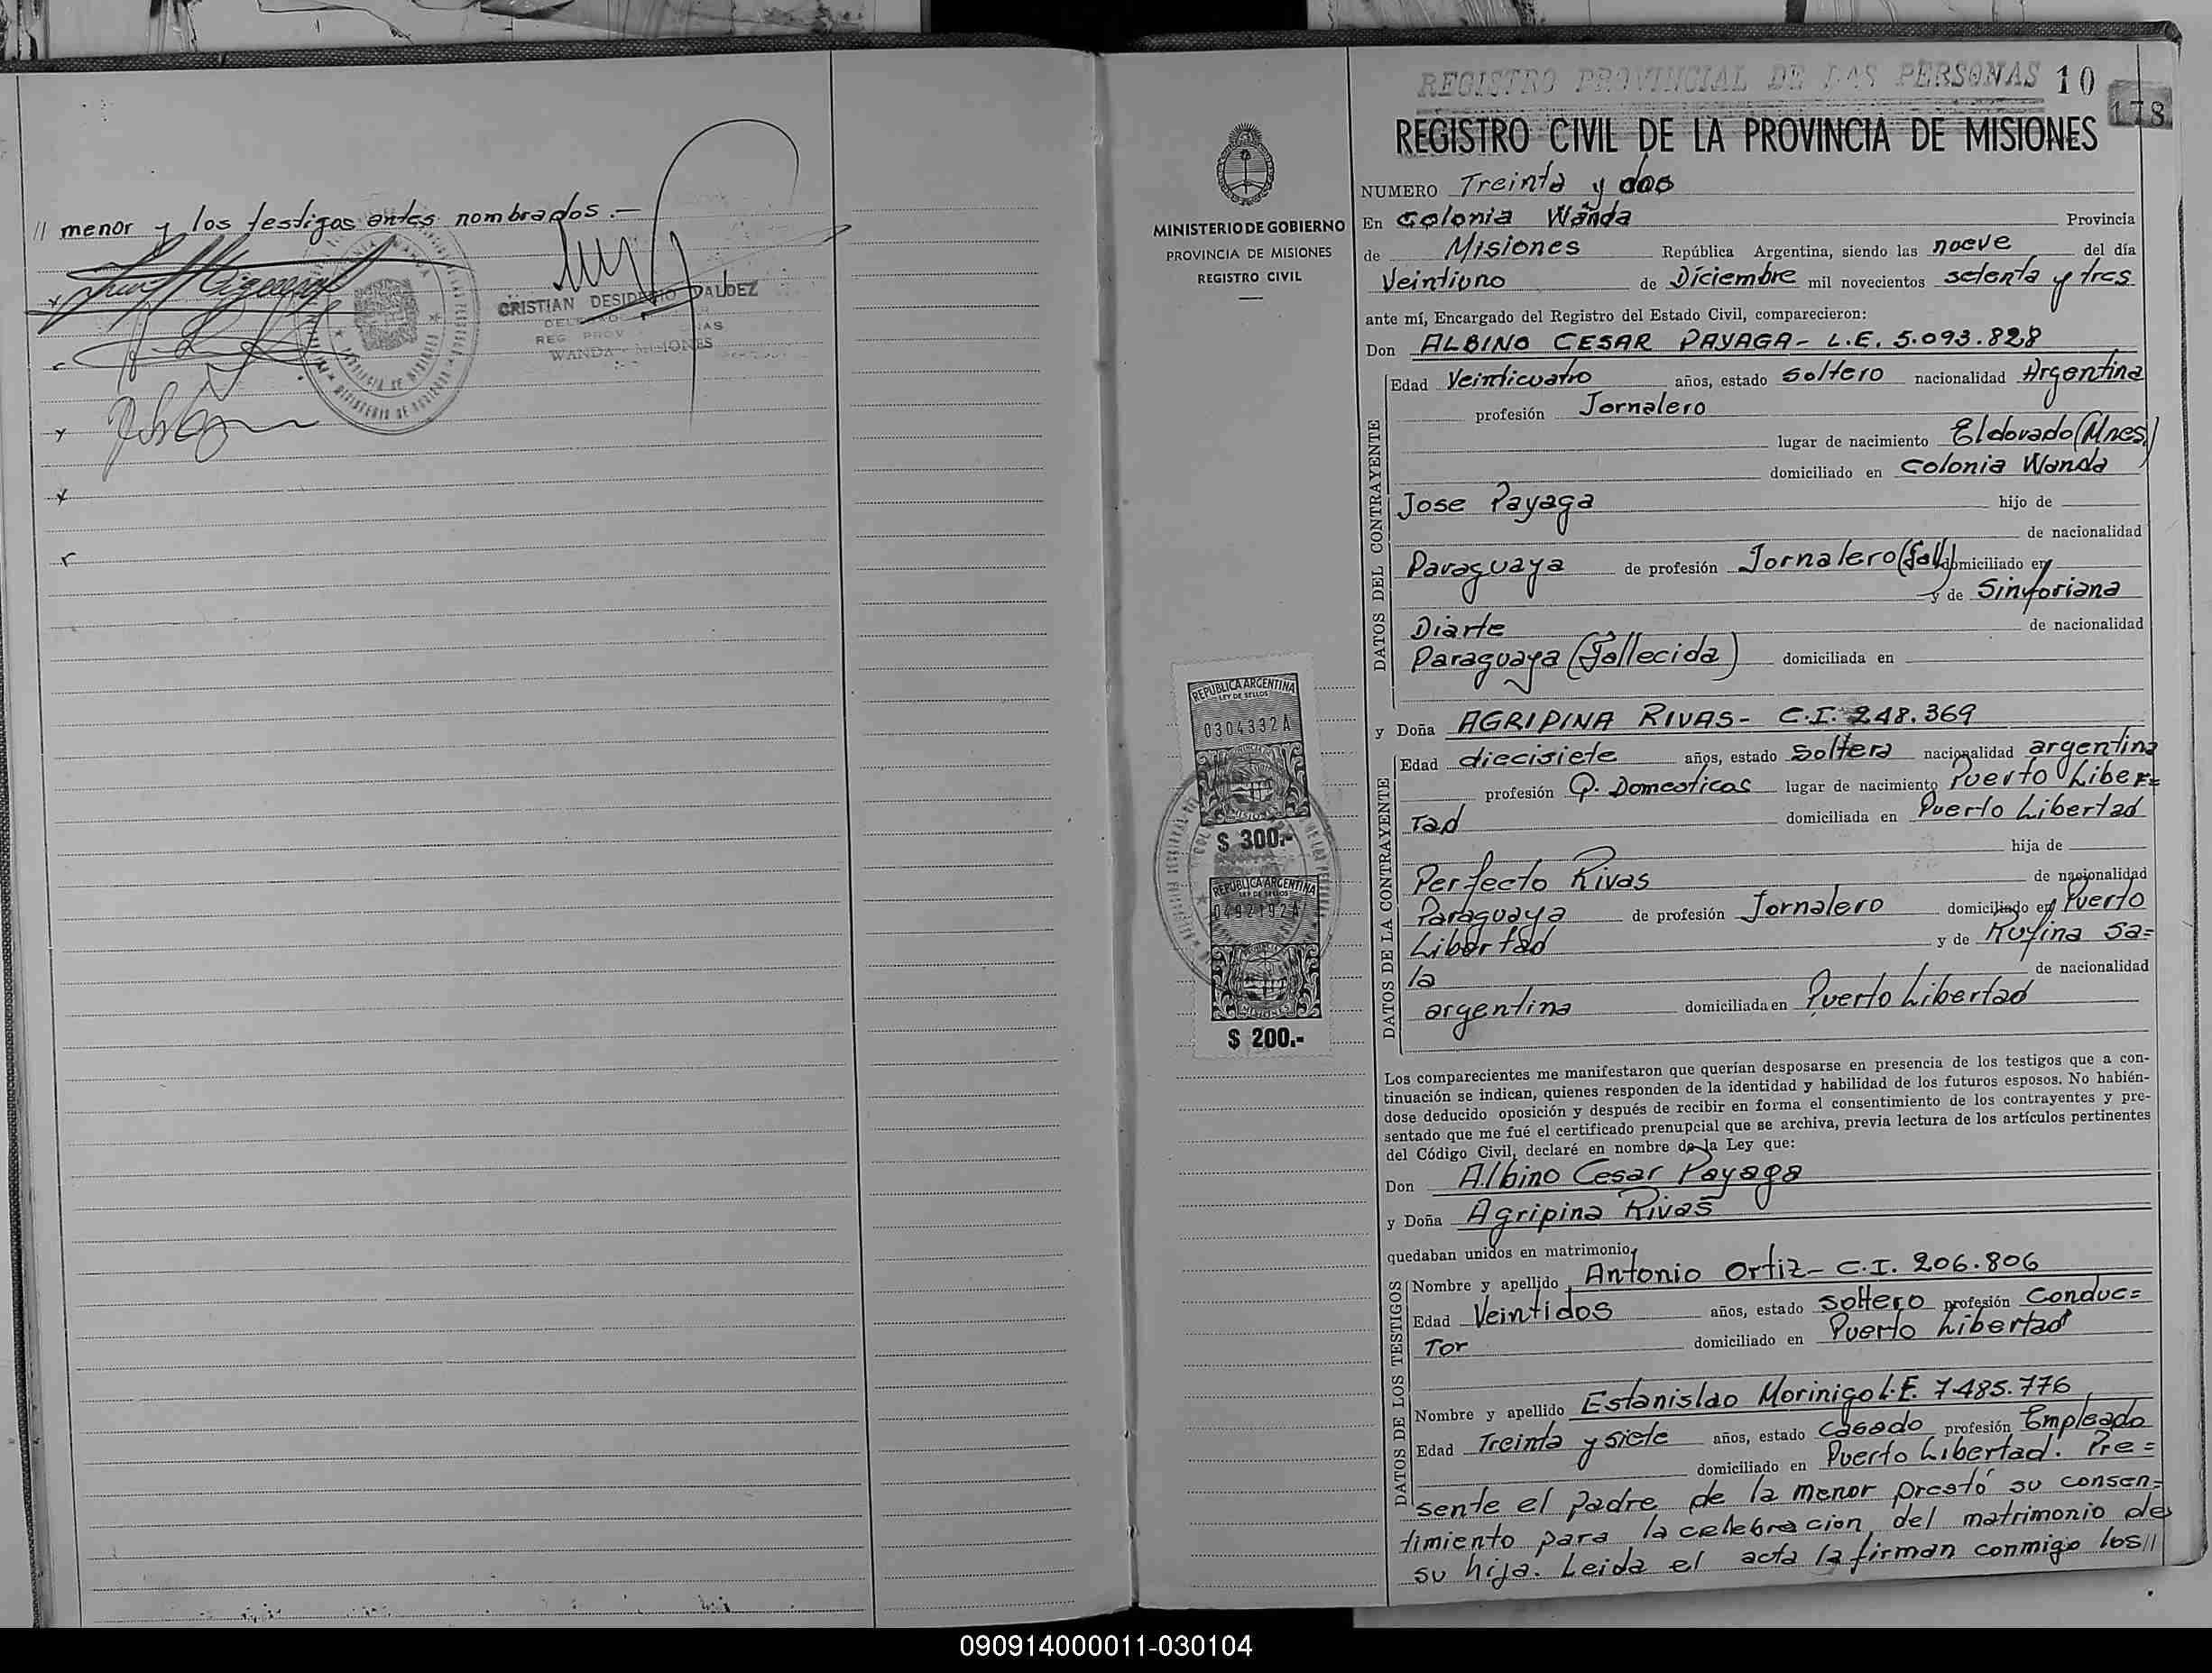 // menor y los testigos antes nombrados.—
CRISTIAN DESIDERIO VALDEZ
DELEGADO
REG. PROV.
WANDA - MISIONES
REGISTRO PROVINCIAL DE LAS PERSONAS 10
178
REGISTRO CIVIL DE LA PROVINCIA DE MISIONES
MINISTERIO DE GOBIERNO
PROVINCIA DE MISIONES
REGISTRO CIVIL
NUMERO Treinta y dos
En Colonia Wanda Provincia
de Misiones República Argentina, siendo las nueve del día
Veintiuno de Diciembre mil novecientos setenta y tres
ante mí, Encargado del Registro del Estado Civil, comparecieron:
Don ALBINO CESAR PAYAGA- L.E. 5.093.828
DATOS DEL CONTRAYENTE
Edad Veinticuatro años, estado soltero nacionalidad Argentina
profesión Jornalero
lugar de nacimiento Eldorado (Mnes)
domiciliado en Colonia Wanda
Jose Payaga hijo de
de nacionalidad
Paraguaya de profesión Jornalero (fall) domiciliado en
y de Sinforiana
Diarte de nacionalidad
Paraguaya (fallecida) domiciliada en
REPUBLICA ARGENTINA
LEY DE SELLOS
0304332A
MISIONES
$ 300.-
REPUBLICA ARGENTINA
LEY DE SELLOS
0492192A
MISIONES
$ 200.-
y Doña AGRIPINA RIVAS- C.I. 248.369
DATOS DE LA CONTRAYENTE
Edad diecisiete años, estado soltera nacionalidad argentina
profesión Q. Domesticos lugar de nacimiento Puerto Liber=
tad domiciliada en Puerto Libertad
hija de
Perfecto Rivas de nacionalidad
Paraguaya de profesión Jornalero domiciliado en Puerto
Libertad y de Rufina Sa=
la de nacionalidad
argentina domiciliada en Puerto Libertad
Los comparecientes me manifestaron que querían desposarse en presencia de los testigos que a con-
tinuación se indican, quienes responden de la identidad y habilidad de los futuros esposos. No habién-
dose deducido oposición y después de recibir en forma el consentimiento de los contrayentes y pre-
sentado que me fué el certificado prenupcial que se archiva, previa lectura de los artículos pertinentes
del Código Civil, declaré en nombre de la Ley que:
Don Albino Cesar Payaga
y Doña Agripina Rivas
quedaban unidos en matrimonio,
DATOS DE LOS TESTIGOS
Nombre y apellido Antonio Ortiz- C.I. 206.806
Edad Veintidos años, estado soltero profesión Conduc=
tor domiciliado en Puerto Libertad
Nombre y apellido Estanislao Morinigo L.E. 7.485.776
Edad Treinta y siete años, estado Casado profesión Empleado
domiciliado en Puerto Libertad. Pre=
sente el padre de la menor prestó su consen=
timiento para la celebracion del matrimonio de
su hija. Leida el acta la firman conmigo los//
090914000011-030104